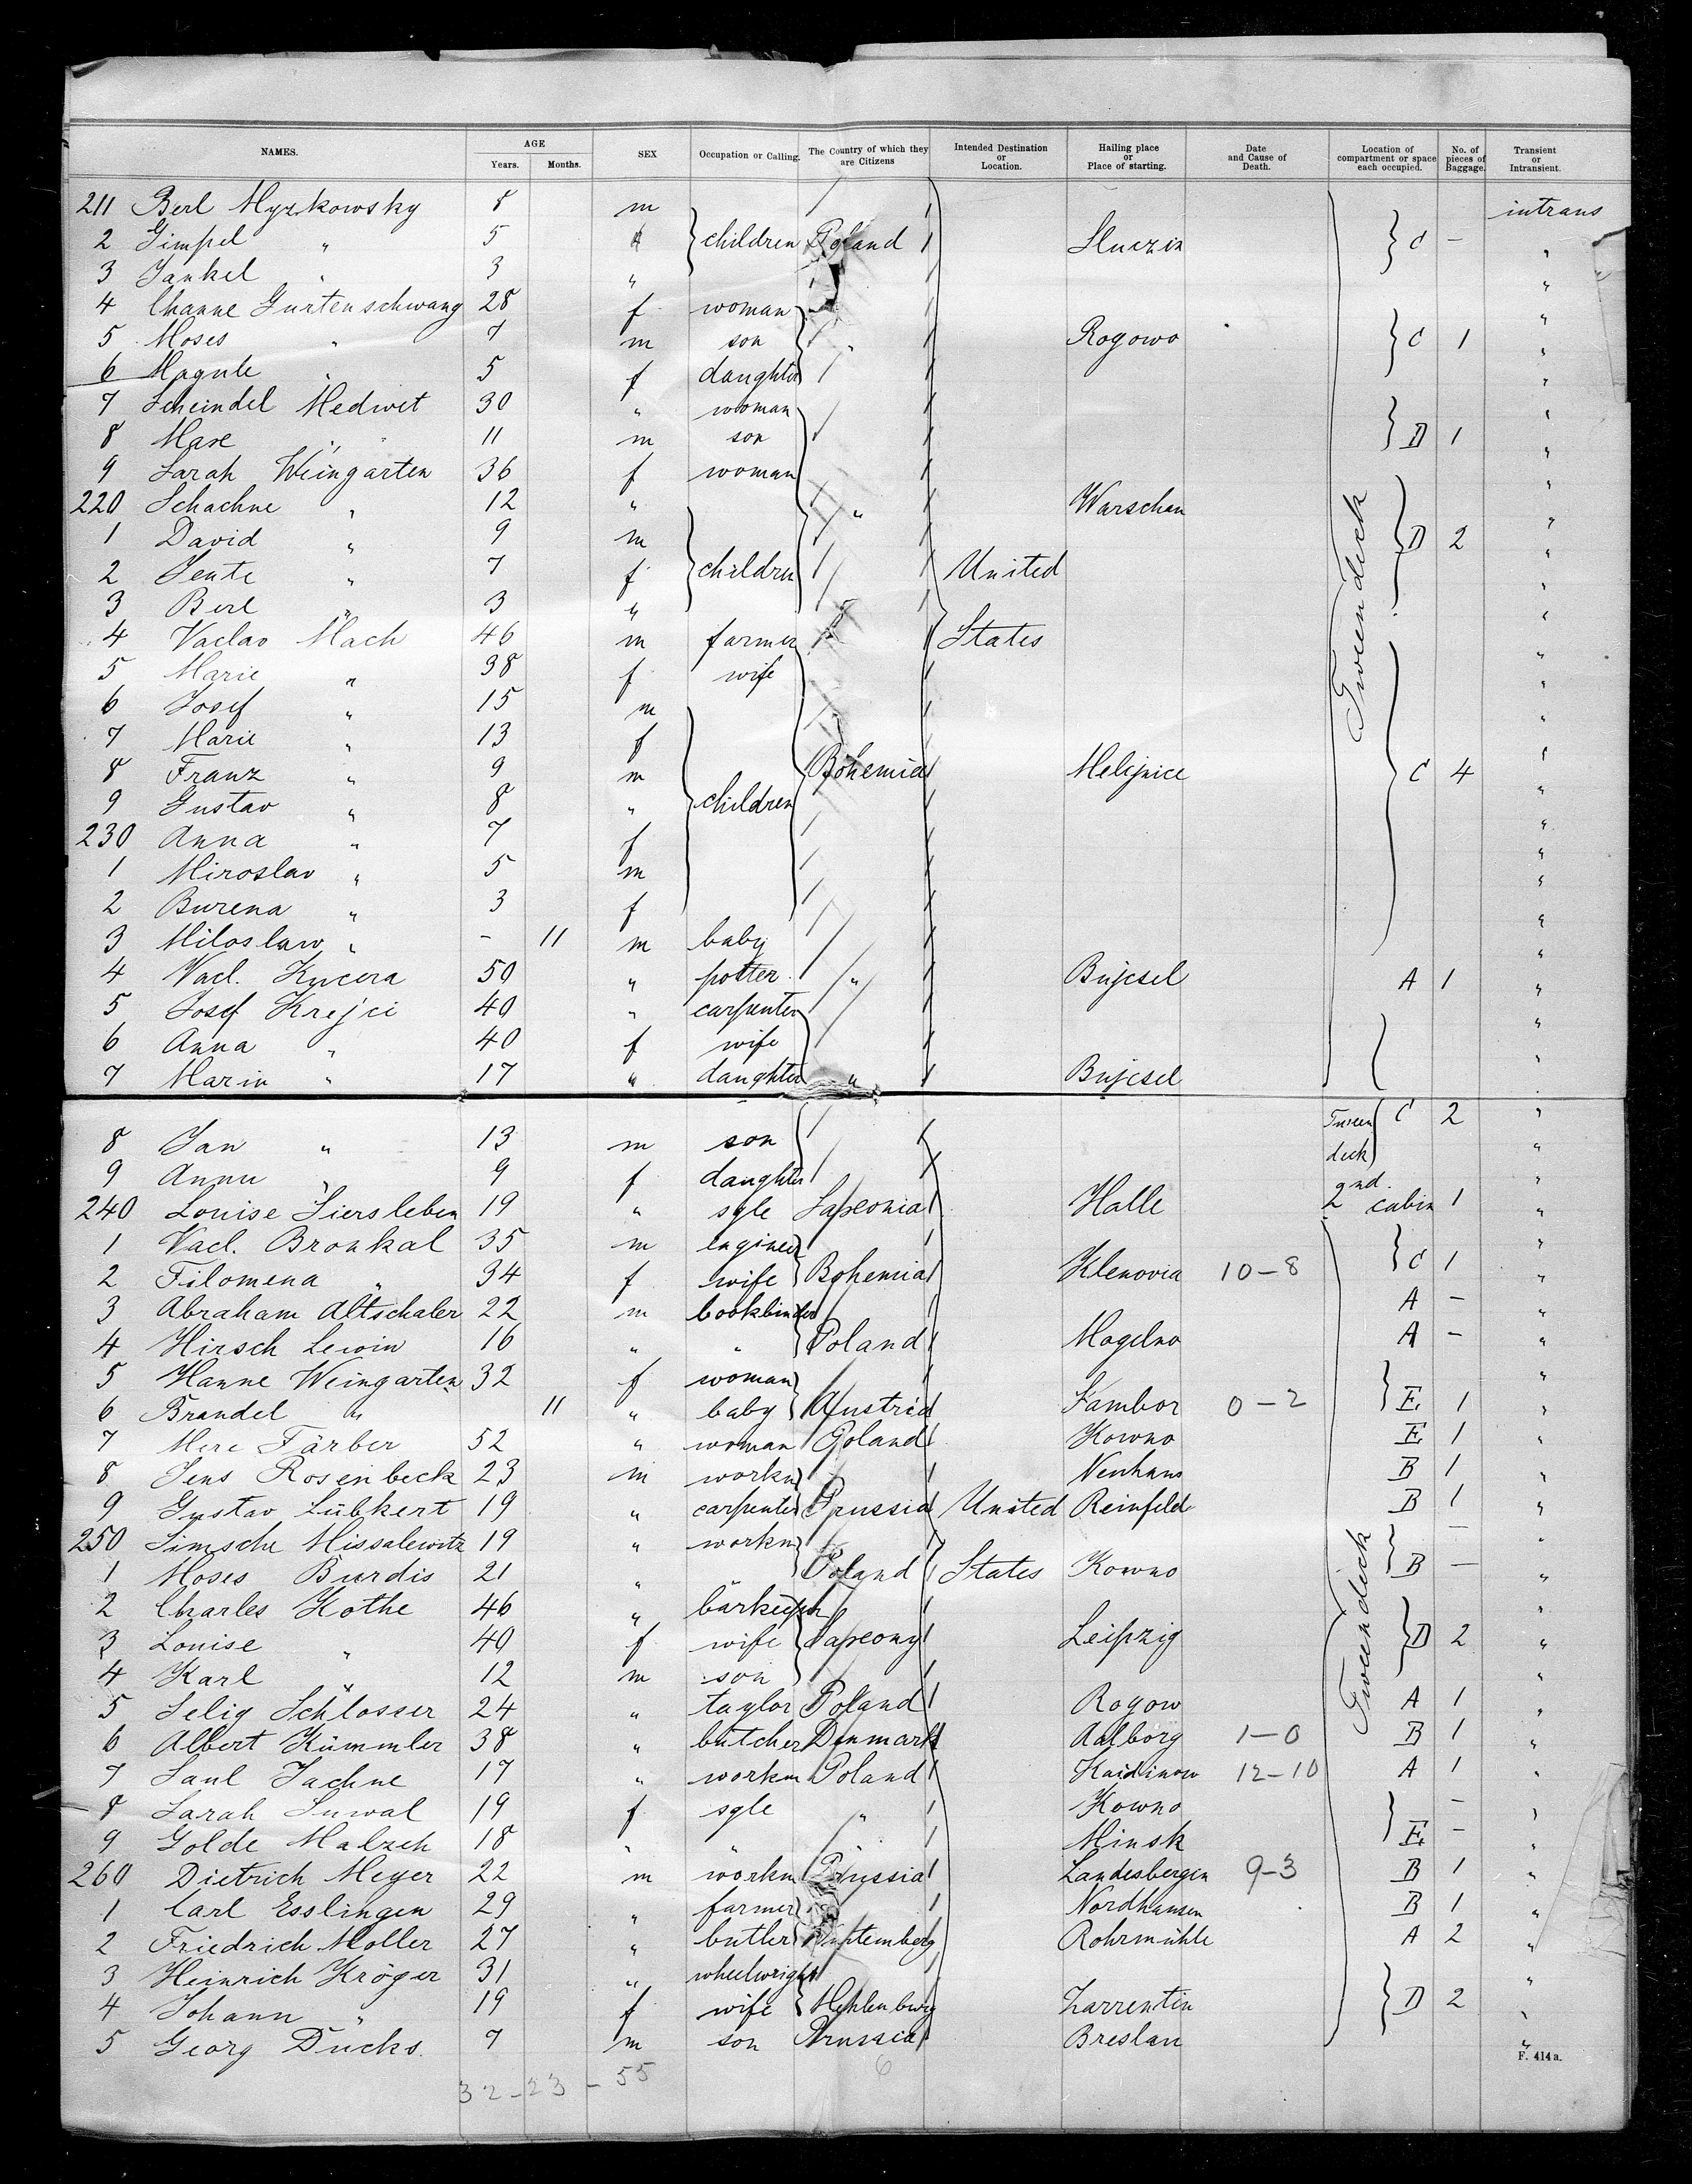 NAMES. AGE Years. Months. SEX Occupation or Calling. The Country of which they are Citizens Intended Destination or Location. Hailing place or Place of starting. Date and Cause of Death. Location of compartment or space each occupied. No. of pieces of Baggage. Transient or Intransient.
211 Berl Myzkowsky 8 m intrans
2 Gimpel " 5 children Poland Sluczin C - "
3 Jankel " 3 " "
4 Channe Gurtenschwang 28 f woman "
5 Moses " 7 m son " Rogowo C 1 "
6 Magule " 5 f daughter "
7 Scheindel Medwet 30 " woman "
8 Maxe " 11 m son D 1 "
9 Sarah Weingarten 36 f woman "
220 Schachne " 12 " " Warschau "
1 David " 9 m D 2 "
2 Jente " 7 f children United "
3 Berl " 3 " "
4 Vaclav Mach 46 m farmer States "
5 Marie " 38 f wife Tweendeck "
6 Josef " 15 m "
7 Marie " 13 f "
8 Franz " 9 m Bohemia C 4 "
9 Gustav " 8 " children "
230 Anna " 7 f "
1 Miroslav " 5 m "
2 Burena " 3 f "
3 Miloslaw " - 11 m baby "
4 Vacl. Kucera 50 " potter " Bujesel A 1 "
5 Josef Krejci 40 " carpenter "
6 Anna " 40 f wife "
7 Marin " 17 " daughter " Bujesel
8 Jan " 13 m son Tween deck C 2 "
9 Anna " 9 f daughter "
240 Louise Siersleben 19 " sgle Saxonia Halle 2nd. cabin 1 "
1 Vacl. Bronkal 35 m engineer "
2 Filomena " 34 f wife Bohemia Klenovia 10-8 C 1 "
3 Abraham Altschaler 22 m bookbinder A - "
4 Hirsch Lewin 16 " " Poland Mogelno A - "
5 Hanne Weingarten 32 f woman "
6 Brandel " 11 " baby Austria Sambor 0-2 E 1 "
7 Mere Färber 52 " woman Poland Kowno E 1 "
8 Jens Rosenbeck 23 m workm Neuhaus B 1 "
9 Gustav Lübkert 19 " carpenter Prussia United Reinfeld B 1 "
250 Simsche Missalewitz 19 " workm - "
1 Moses Burdis 21 " Poland States Kowno B - "
2 Charles Kothe 46 " "
3 Louise " 40 f wife Saxony Leipzig D 2 "
4 Karl " 12 m son Tweendeck "
5 Selig Schlosser 24 " taylor Poland Rogow A 1 "
6 Albert Kümmler 38 " butcher Denmark Aalborg 1-0 B 1 "
7 Saul Jachne 17 " workm Poland 12-10 A 1 "
8 Sarah Suwal 19 f sgle " Kowno - "
9 Golde Malzeh 18 " " " Minsk E - "
260 Dietrich Meyer 22 m workm Prussia Landesbergen 9-3 B 1 "
1 Carl Esslingen 29 " farmer Nordhausen B 1 "
2 Friedrich Moller 27 " butler Rohrmühle A 2 "
3 Heinrich Kröger 31 " wheelwright "
4 Johann " 19 f wife Meklenburg Zarrentin D 2 "
5 Georg Ducks. 7 m son Prussia Breslau "
F. 414a.
32-23-55 6